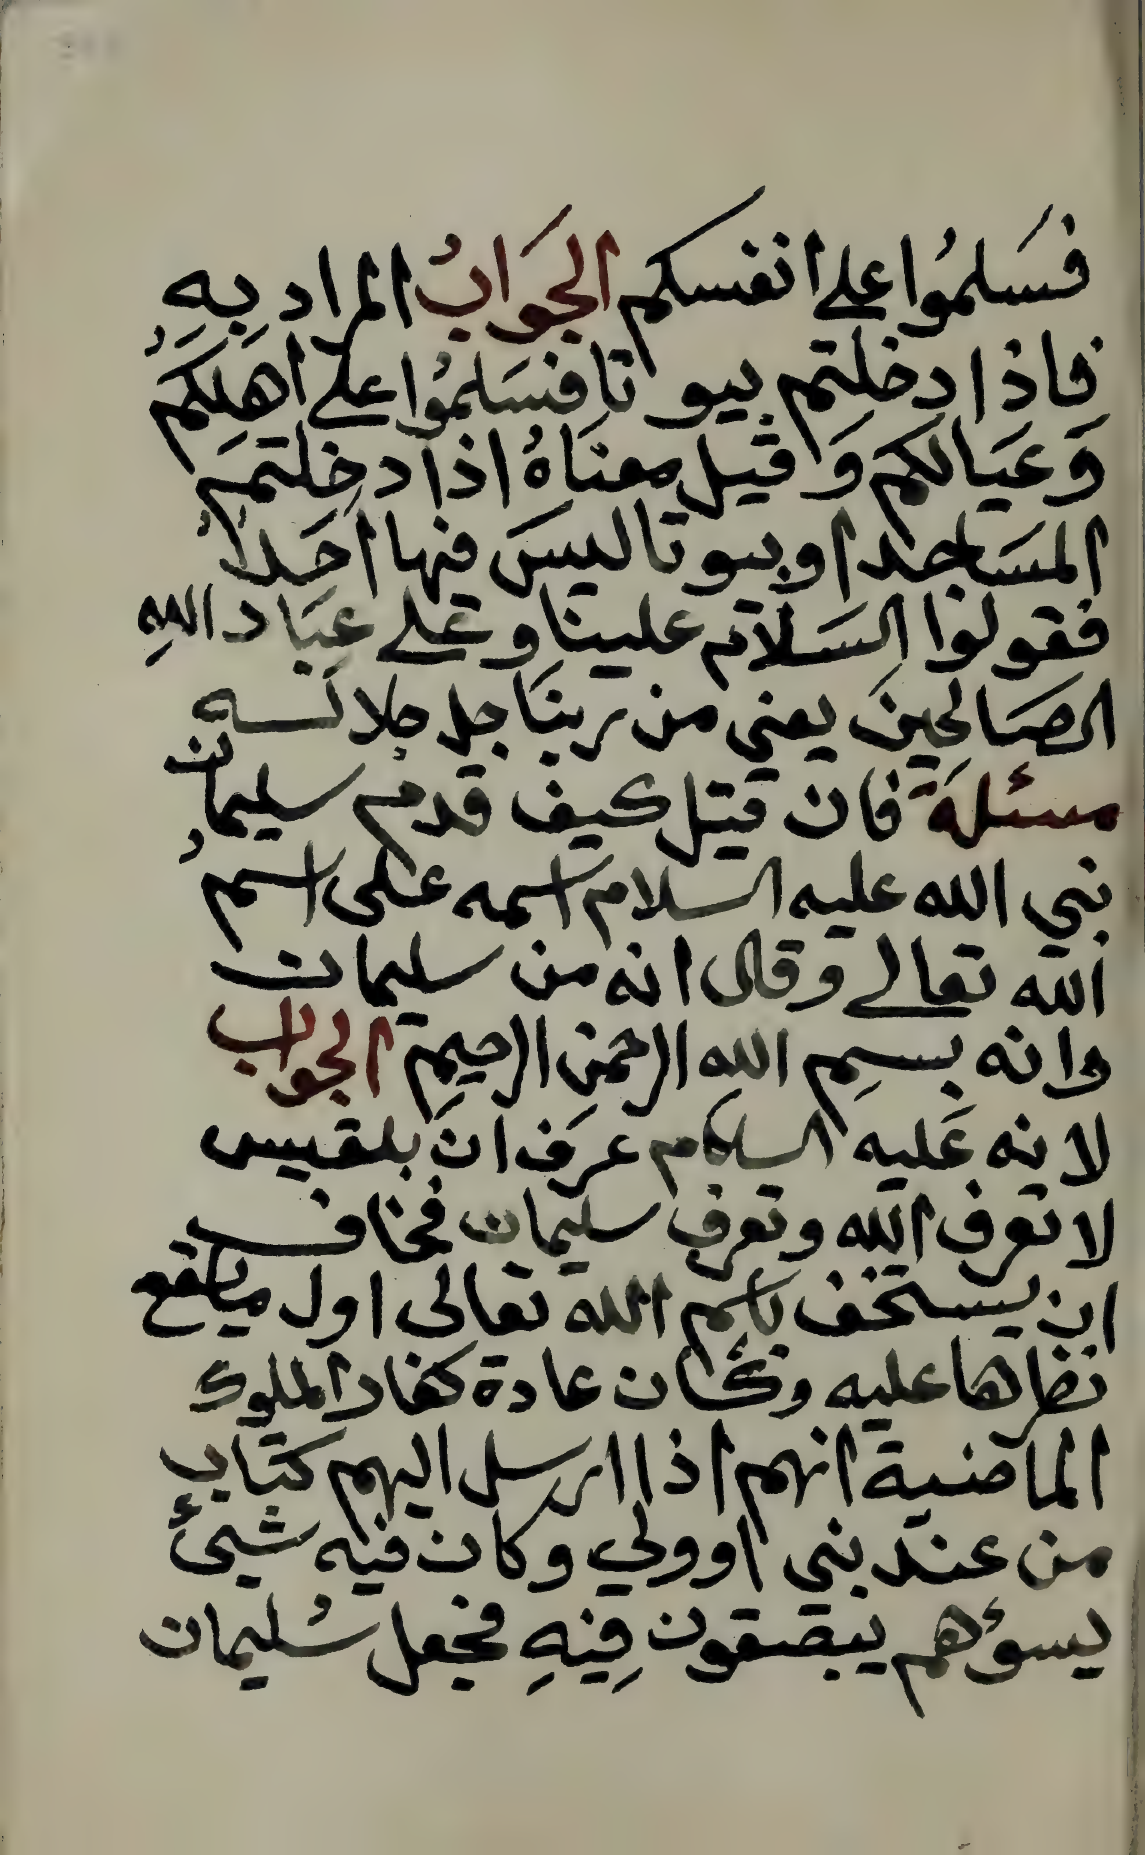 فسَلمُوا على انفسكم الجَوَابُ المراد بِهِ
فاذا دخلتم بيوتا فسَلمُوا على اهلكم
وَعيَالكم وَقيل معناهُ اذا دخلتم
المسَاجد او بيوتا ليسَ فيها احَدٌ
فقولوا السَلام علينا وعلى عِبَاد اللهِ
الصَالحينَ يعني من ربنَا جل جلالَه
مسئلة فان قيل كيف قدم سليمانُ
نبي الله عليه السلام اسمه على اسم
الله تعالى وقال انه من سليمان
وانه بسمِ الله الرحمن الرحيم الجواب
لانه عَليه السلام عرَف انَ بلقيس
لا تعرف الله وتعرف سليمان فخاف
ان يستخف باسم الله تعالى اول ما يقع
نظرها عليه وكان عادة كفار الملوك
الماضية انهم اذا ارسل اليهم كتاب
من عند نبي او ولي وكان فيه شيئ
يسوؤهم يبصقون فِيهِ فجعل سُليمان